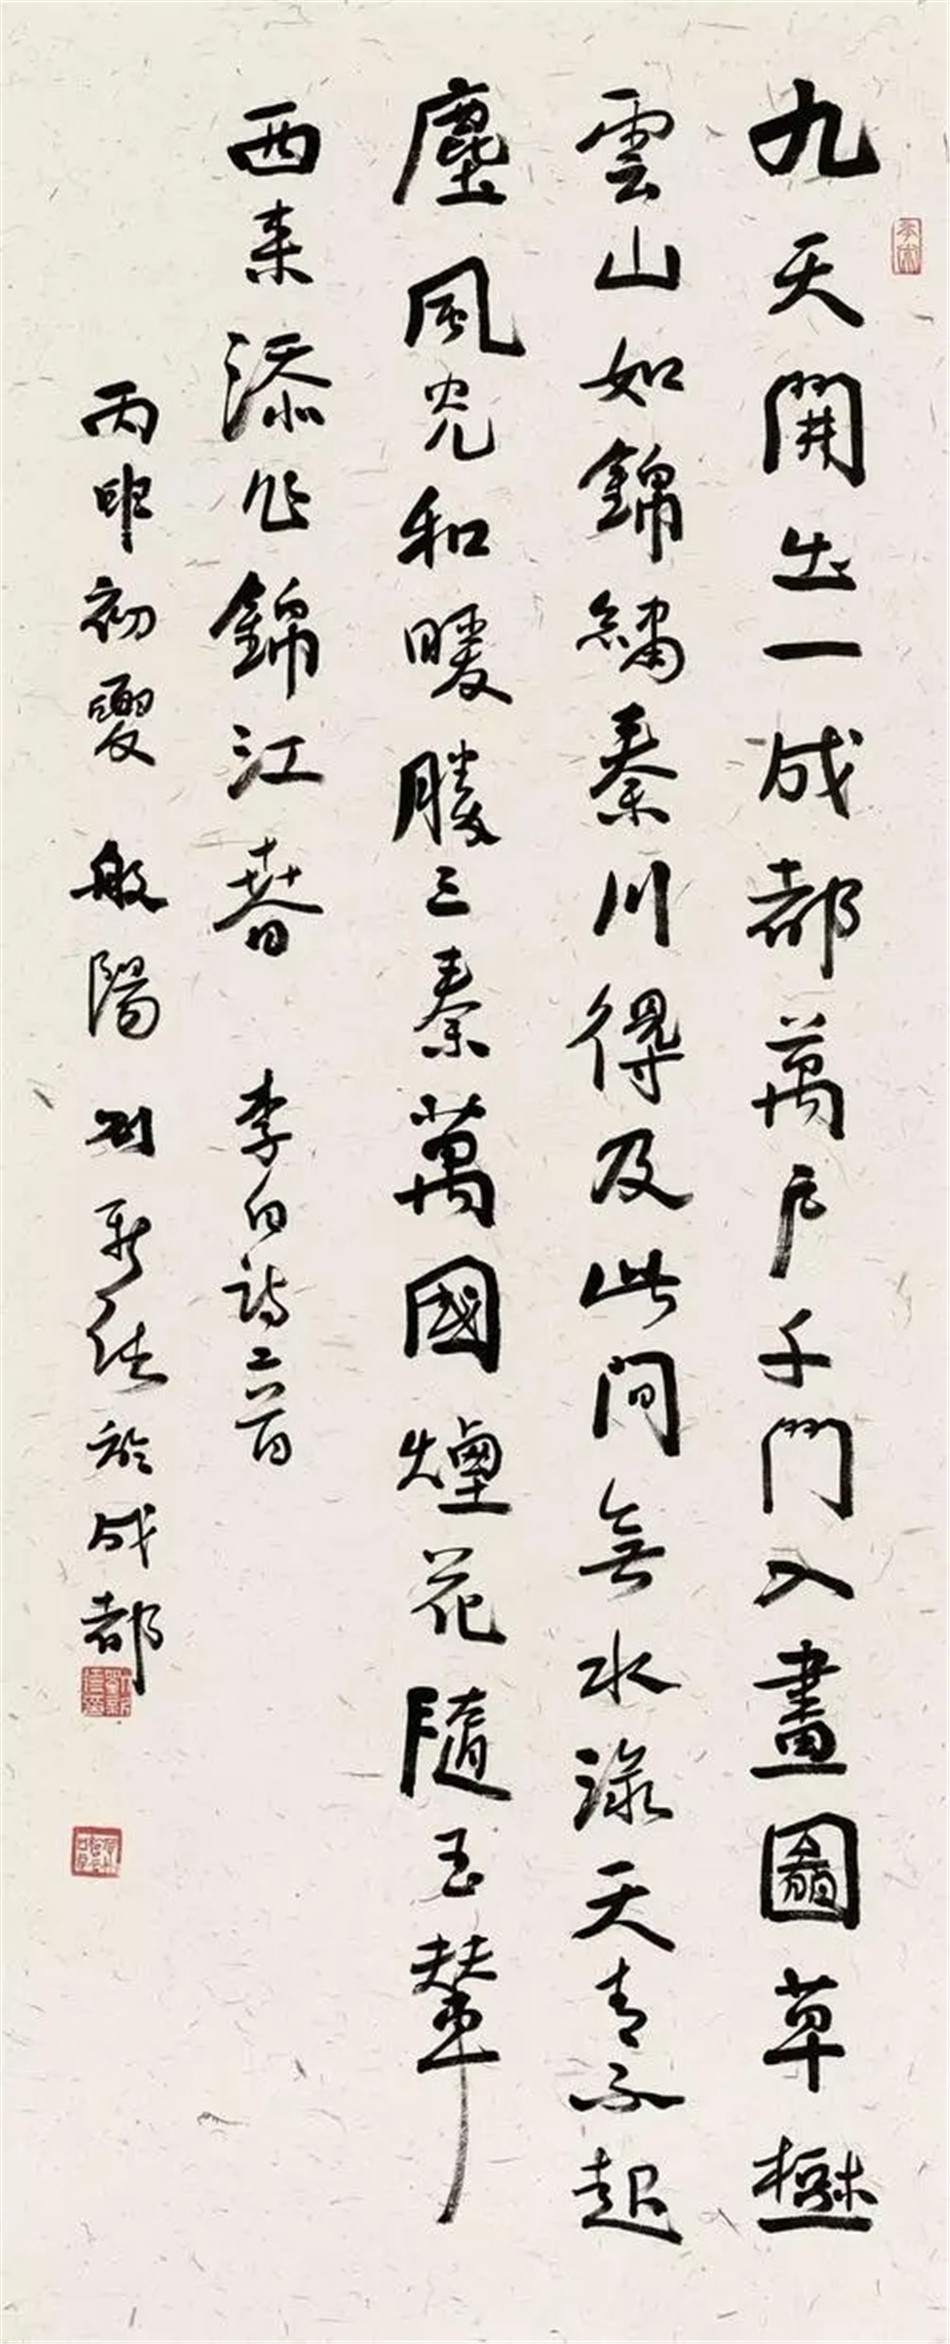 九天開出一成都萬户千門入畫圖草樹
雲山如錦繡秦川得及此間無水淥天青不起
塵風光和暖勝三秦萬國煙花隨玉輦
西来添作錦江春 李白詩二首
丙申初夏 般陽 劉新德於成都